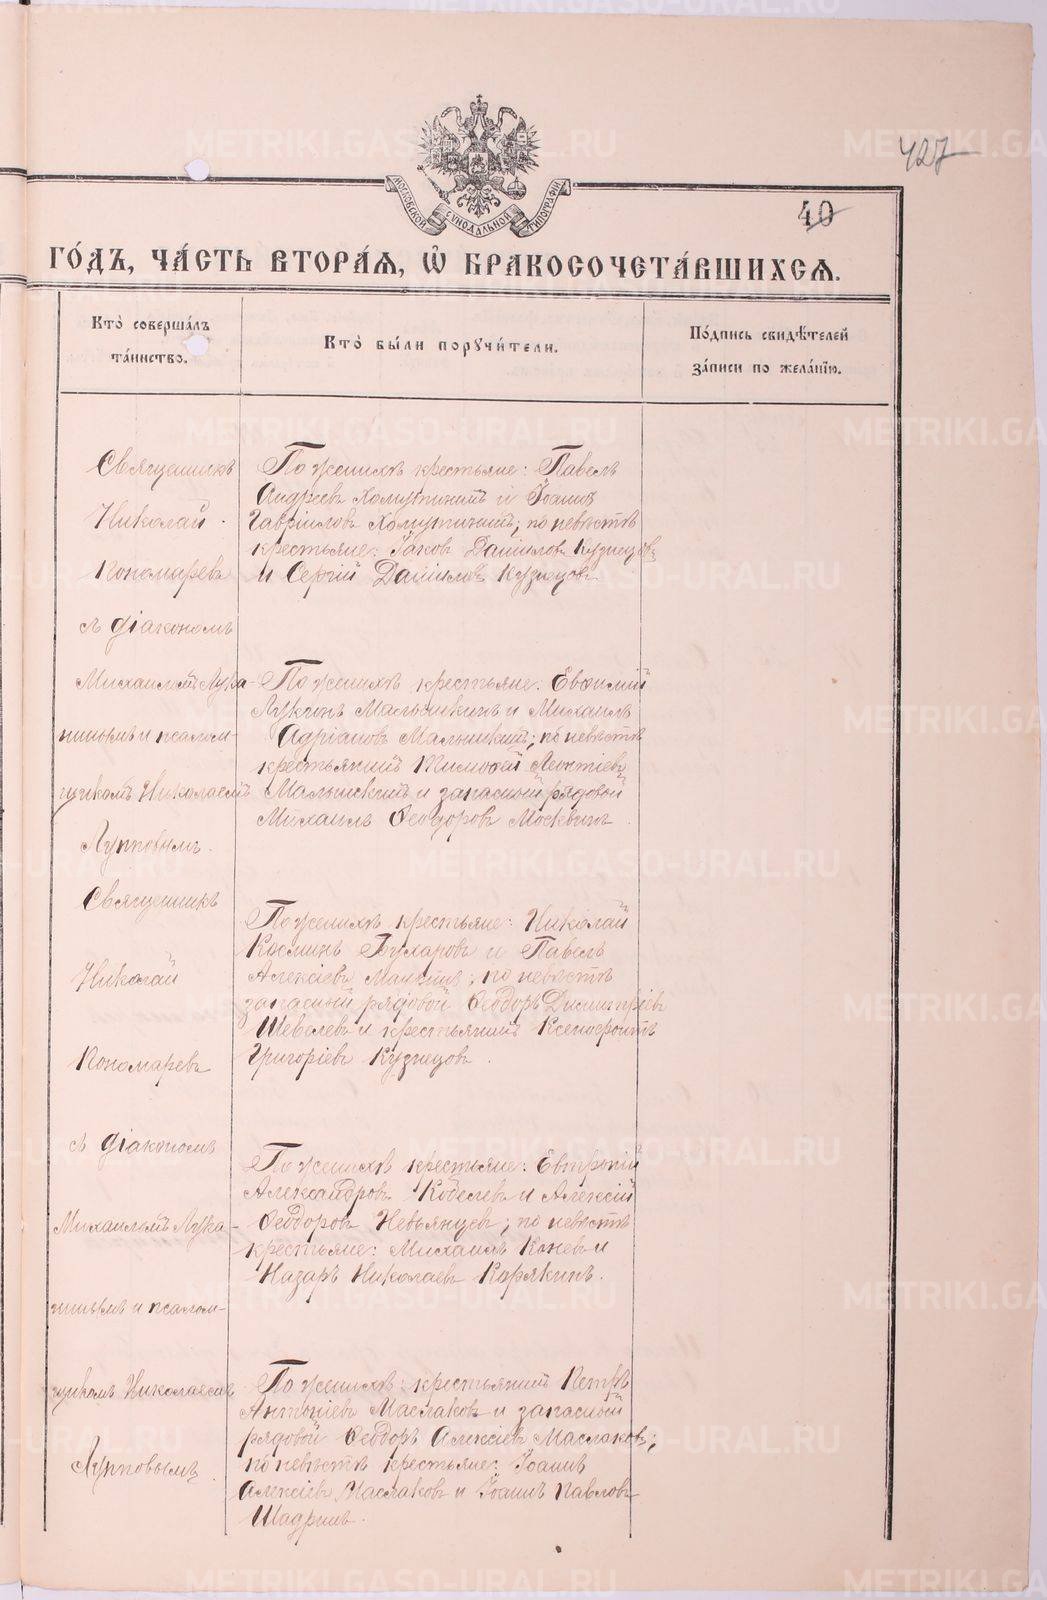 427
МОСКОВСКОЙ СѴНОДАЛЬНОЙ ТИПОГРАФІИ
40
ГО́ДЪ, ЧА́СТЬ ВТОРА́Я, Ѽ БРАКОСОЧЕТА́ВШИХСЯ.
Кто̀ соверша́лъ
та́инство.
Кто̀ бы́ли порꙋчи́тели.
По́дпись свидѣ́телей
за́писи по жела́нїю.
Священникъ
Николай
Пономаревъ
съ діакономъ
Михаиломъ Лука-
нинымъ и псалом-
щикомъ Николаемъ
Лупповымъ.
По женихѣ крестьяне: Павелъ
Андреевъ Хомутининъ и Іоаннъ
Гавріиловъ Хомутининъ; по невѣстѣ
крестьяне: Іаковъ Даніиловъ Кузнецовъ
и Сергій Даніиловъ Кузнецовъ
По женихѣ крестьяне: Евфимій
Лукинъ Малышкинъ и Михаилъ
Адріановъ Малышкинъ; по невѣстѣ
крестьянинъ Тимофей Леонтіевъ
Малышкинъ и запасный рядовой
Михаилъ Феодоровъ Москвинъ.
Священникъ
Николай
Пономаревъ
съ діакономъ
Михаиломъ Лука-
нинымъ и псалом-
щикомъ Николаемъ
Лупповымъ.
По женихѣ крестьяне: Николай
Косминъ Бухаровъ и Павелъ
Алексіевъ; по невѣстѣ
запасный рядовой Феодоръ Димитріевъ
Шевелевъ и крестьянинъ Ксенофонтъ
Григоріевъ Кузнецовъ.
По женихѣ крестьяне: Евтропій
Александровъ Кобелевъ и Алексій
Феодоровъ Невьянцевъ; по невѣстѣ
крестьяне: Михаилъ Коневъ и
Назаръ Николаевъ Корякинъ.
По женихѣ: крестьянинъ Петръ
Антоніевъ Маслаковъ и запасный
рядовой Феодоръ Алексіевъ Маслаковъ;
по невѣстѣ крестьяне: Іоаннъ
Алексіевъ Маслаковъ и Іоаннъ Павловъ
Шадринъ.
METRIKI.GASO-URAL.RU